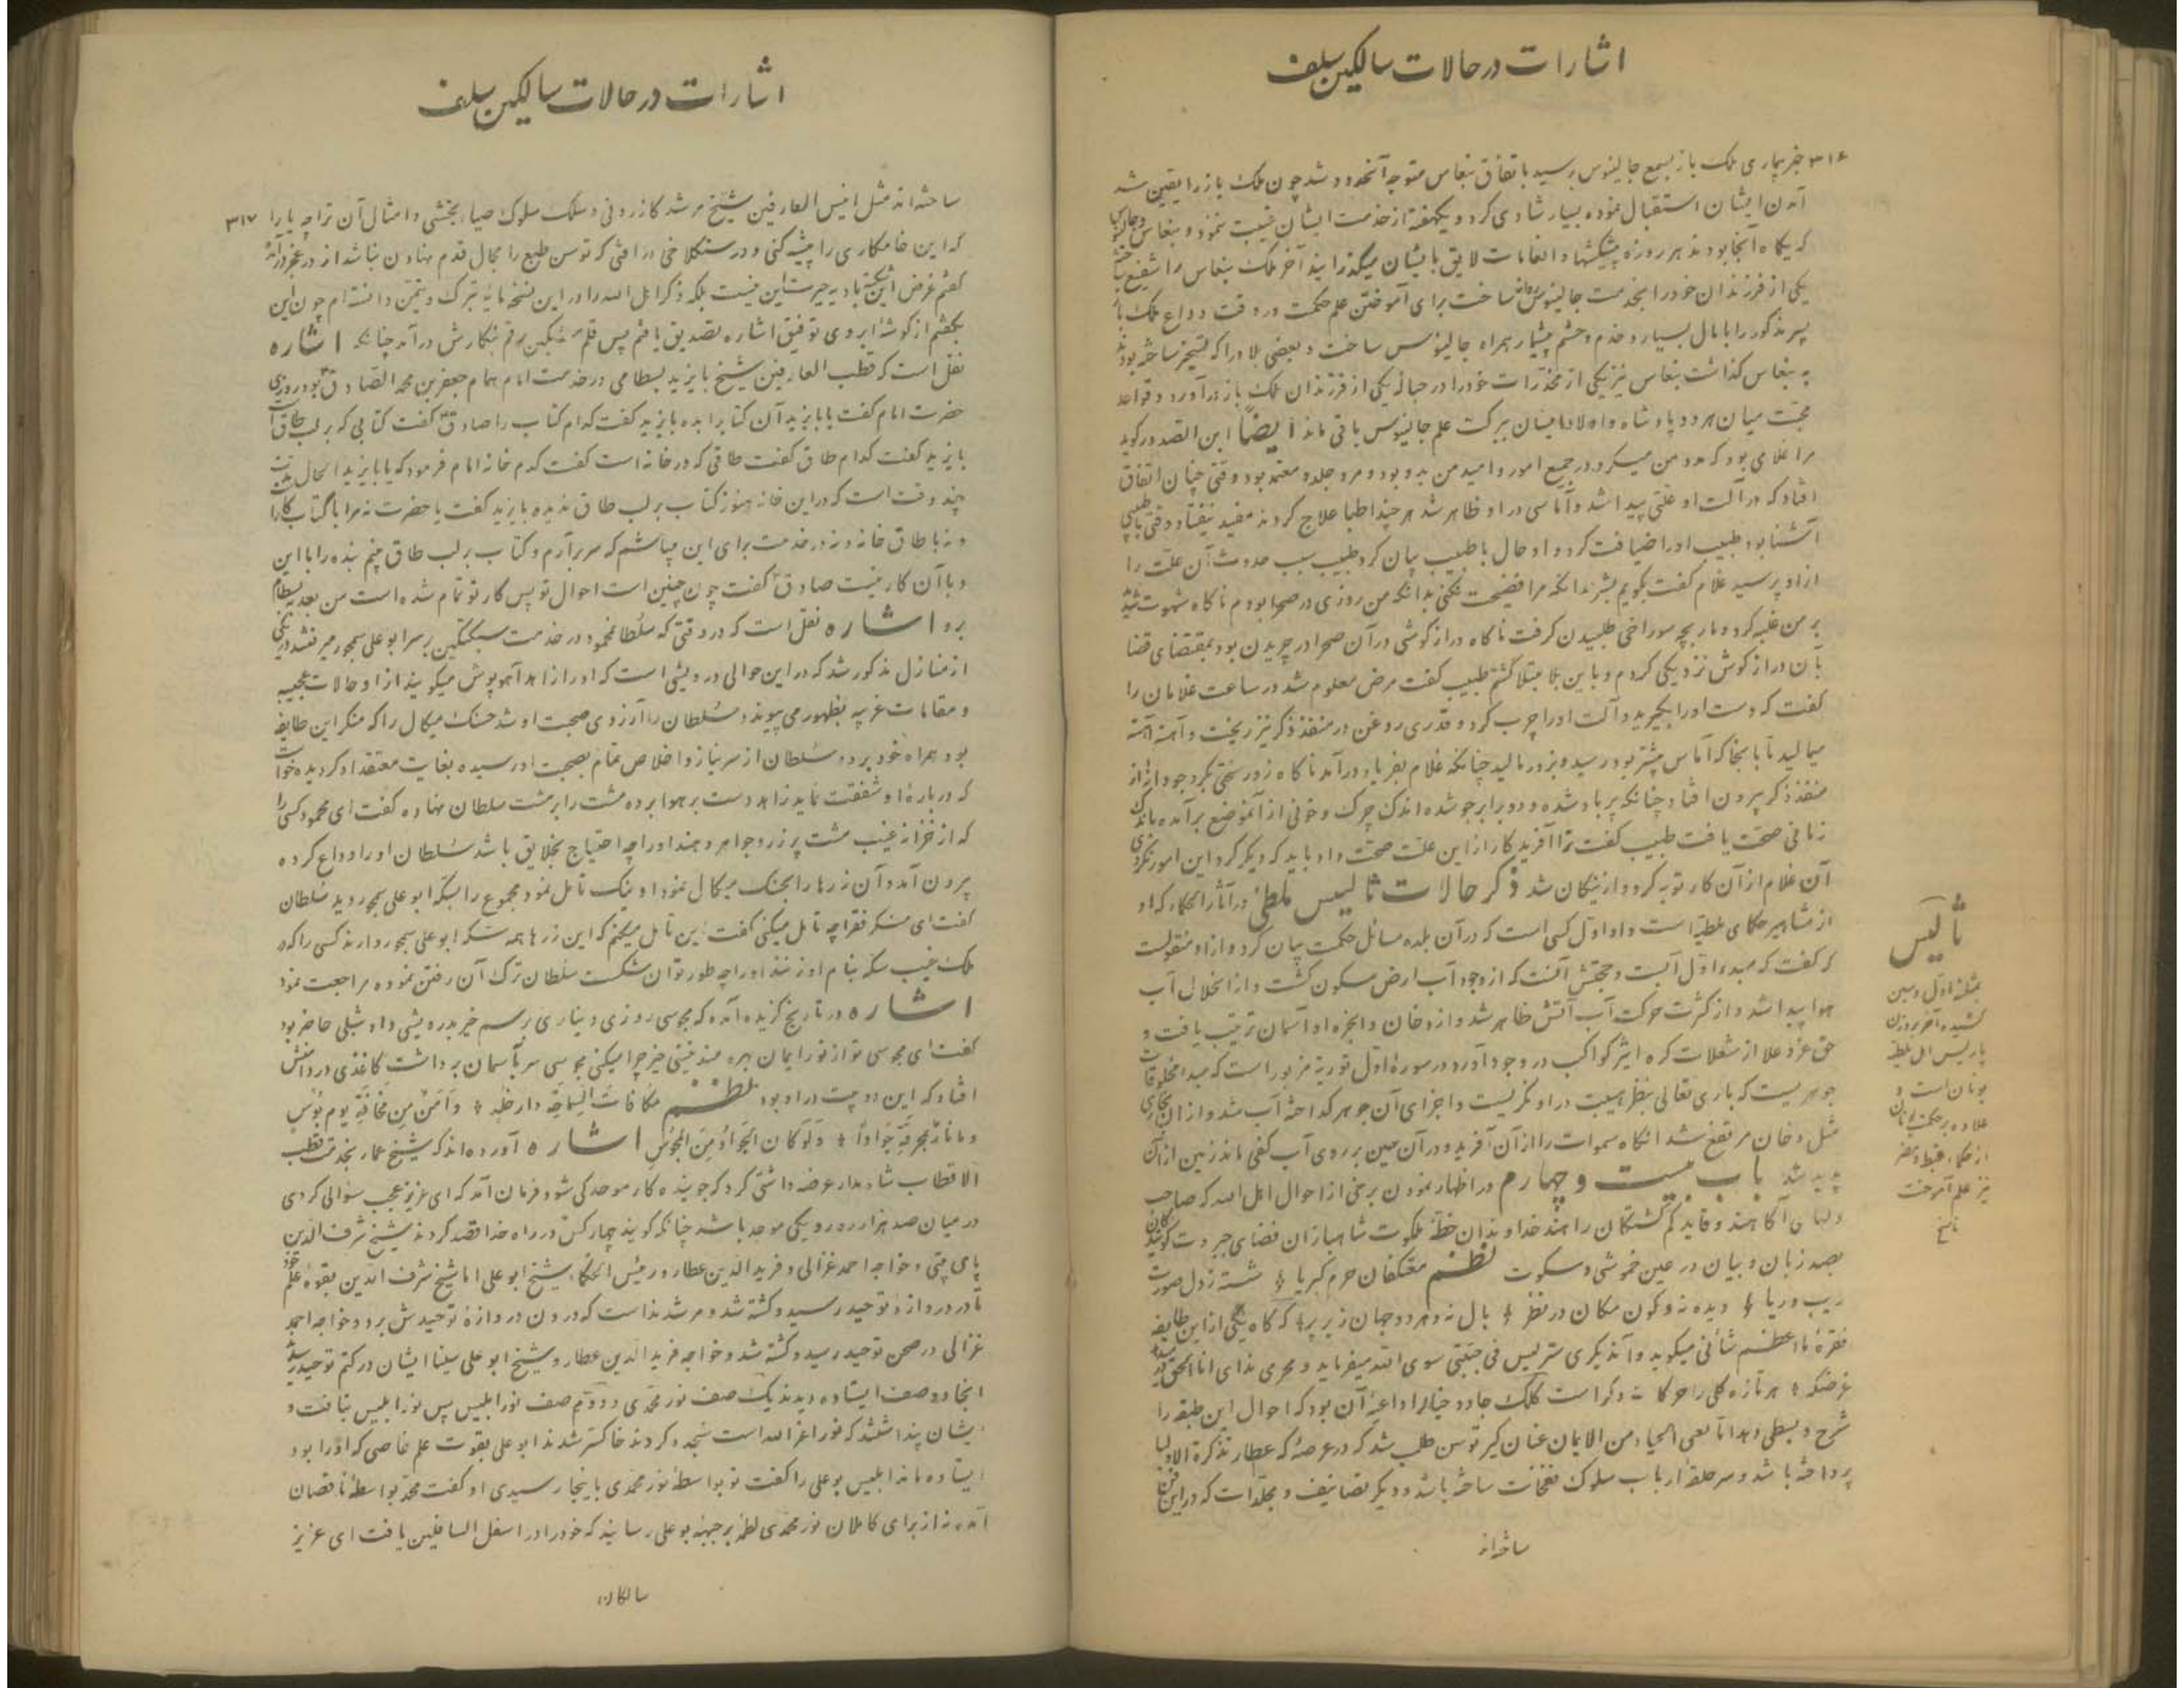 اشارات در حالات سالکین سلف
۳۱۶ خبر بیماری ملک باز بسمع جالینوس رسید باتفاق بنغاس متوجه آنحدود شد چون ملک باز را یقین شد
آمدن ایشان استقبال نموده بسیار شادی کرد و یکهفته از خدمت ایشان غیبت ننمود و بنغاس و جالینوس
که یکماه آنجا بودند هر روزه پیشکشها و انعامات لایق بایشان میگذرانید آخر ملک بنغاس را شفیع
یکی از فرزندان خود را بخدمت جالینوس روانه ساخت برای آموختن علم حکمت و در وقت وداع ملک باز
پسر مذکور را با مال بسیار و خدم و حشم بیشمار همراه جالینوس ساخت و بعضی بلاد را که تسخیر ساخته بودند
به بنغاس گذاشت بنغاس نیز یکی از مخدرات خود را در حباله یکی از فرزندان ملک باز درآورد و قواعد
محبت میان هر دو پادشاه و اولاد ایشان ببرکت علم جالینوس باقی ماند ایضاً ابن الصدور گوید
مرا غلامی بود که مدد من میکرد در جمیع امور و امید من بدو بود و مرد جلد و معتمد بود وقتی چنان اتفاق
افتاد که در آلت او علتی پیدا شد و آماسی در او ظاهر شد هر چند اطبا علاج کردند مفید نیفتاد وقتی با طبیبی
آشنا بود طبیب او را ضیافت کرد و او حال با طبیب بیان کرد طبیب سبب حدوث آن علت را
از او پرسید غلام گفت بگویم بشرط آنکه مرا فضیحت نکنی بدانکه من روزی در صحرا بودم ناگاه شهوت
بر من غلبه کرد و مار بچه سوراخی طلبیدن گرفت ناگاه درازگوشی در آن صحرا در چریدن بود بمقتضای قضا
بآن درازگوش نزدیکی کردم و باین بلا مبتلا گشتم طبیب گفت مرض معلوم شد در ساعت غلامان را
گفت که دست او را بگیرید و آلت او را چرب کرد و قدری روغن در منفذ ذکر نیز ریخت و آهسته آهسته
میمالید تا بآنجا که آماس بیشتر بود رسید و بزور مالید چنانکه غلام بفریاد درآمد ناگاه زور سختی بکرد جو دانه از
منفذ ذکر بیرون افتاد چنانکه پر باد شده و دو برابر جو شده اندک چرک و خونی از آنموضع برآمد
زمانی صحت یافت طبیب گفت ترا آفریدگار از این علت صحت داد باید که دیگر گرد این امور نگردی
آن غلام از آن کار توبه کرد و از نیکان شد ذکر حالات ثالیس ملطی در آثار الحکما که او
از مشاهیر حکمای ملطیه است و او اول کسی است که در آن بلده مسائل حکمت بیان کرد و از او منقولست
که گفت که مبدء اول آبست و حجتش آنست که از وجود آب ارض مسکون گشت و از انحلال آب
هوا پیدا شد و از کثرت حرکت آب آتش ظاهر شد و از دخان و ابخره او آسمان ترتیب یافت و
حق عز و علا از شعلات کره اثیر کواکب در وجود آورد و در سوره اول توریة مزبور است که مبدا مخلوقات
جوهریست که باری تعالی بنظر هیبت در او نگریست و اجزای آن جوهر گداخته آب شد و از آن بخاری
مثل دخان مرتفع شد آنگاه سموات را از آن آفرید و در آن حین بر روی آب کفی ماند زمین از آن
پدید شد باب بیست و چهارم در اظهار نمودن برخی از احوال اهل الله که صاحب
دلان آگاهند و قاید گم گشتگان راهند خداوندان خطه ملکوت شاهبازان فضای جبروت
بصد زبان و بیان در عین خموشی و سکوت نظم معتکفان حرم کبریا شسته ز دل صورت
ریب و ریا دیده نه و کون مکان در نظر بال نه و هر دو جهان زیر پر که گاه یکی از این طایفه
فقره ما اعظم شأنی میگوید و آندیگری ستر لیس فی جبتی سوی الله میفرماید و محرمی ندای انا الحق
غرضکه هر تازه گلی را حرکات دگر است کلک جادو خیال را داعیه آن بود که احوال این طبقه را
شرح و بسطی دهد انا نعمی الحیاء من الایمان عنان گیر توسن طلب شد که در عرصه که عطار تذکرة الاولیا
پرداخته باشد و سر حلقه ارباب سلوک نفحات ساخته باشد و دیگر تصانیف و مجلدات که در این فن
ساخته‌اند
ثالیس
بمثلثه اول و سین
کشیده آخر بروزن
پاریس اهل ملطیه
یونان است و
علاوه بر حکمت یونان
از حکماء قبط و مصر
نیز علم آموخت
ناسخ
اشارات در حالات سالکین سلف
ساخته‌اند مثل انیس العارفین شیخ مرشد کازرونی و سلک سلوک ضیاء بخشی و امثال آن ترا چه یارا ۳۱۷
که این خامکاری را پیشه کنی و در سنگلاخی در افتی که توسن طبع را مجال قدم نهادن نباشد از در عجز درآمده
گفتم غرض این گم‌گشته بادیه حیرت این نیست بلکه ذکر اهل الله را در این نسخه مایه تبرک و تیمن دانسته‌ام چون این
بگفتم از گوشه ابروی توفیق اشاره تصدیق یافتم پس قلم مشکین رقم بنگارش درآمد چنانکه اشاره
نقل است که قطب العارفین شیخ بایزید بسطامی در خدمت امام همام جعفر بن محمد الصادق بود روزی
حضرت امام گفت یا بایزید آن کتاب را بده بایزید گفت کدام کتاب را صادق گفت کتابی که بر لب طاق است
بایزید گفت کدام طاق گفت طاقی که در خانه است گفت کدام خانه امام فرمود که یا بایزید الحال
چند وقت است که در این خانه هنوز کتاب بر لب طاق ندیده بایزید گفت یا حضرت نه مرا با کتاب کار است
و نه با طاق خانه و نه در خدمت برای این میباشم که سر برآرم و کتاب بر لب طاق بینم بنده را با این
و با آن کار نیست صادق گفت چون چنین است احوال تو پس کار تو تمام شده است من بعد ببسطام
برو اشاره نقل است که در وقتی که سلطان محمود در خدمت سبکتکین بر سر ابوعلی سیمجور میرفتند در یکی
از منازل مذکور شد که در این حوالی درویشی است که او را زاهد آهوپوش میگویند از او حالات عجیبه
و مقامات غریبه بظهور می‌پیوندد سلطان را آرزوی صحبت او شد حسنک میکال را که منکر این طایفه
بود همراه خود برد و سلطان از سر نیاز و اخلاص تمام بصحبت او رسیده بغایت معتقد او گردیده خواست
که درباره او شفقت نماید زاهد دست بر هوا برده مشت را بر مشت سلطان نهاده گفت ای محمود کسی را
که از خزانه غیب مشت پر زر و جواهر دهند او را چه احتیاج بخلایق باشد سلطان او را وداع کرده
بیرون آمد و آن زرها را بحسنک میکال نمود او نیک تامل نمود مجموع را بسکه ابوعلی سیمجور دید سلطان
گفت ای منکر فقرا چه تامل میکنی گفت این تامل میکنم که این زرها همه سکه ابوعلی سیمجور دارند کسی را که در
ملک غیب سکه بنام او زنند او را چه طور توان شکست سلطان ترک آن رفتن نموده مراجعت نمود
اشاره در تاریخ گزیده آمده که مجوسی روزی دیناری برسم خیر بدرویشی داد شبلی حاضر بود
گفت ای مجوسی تو از نور ایمان بهره مند نیستی خیر چرا میکنی مجوسی سر بآسمان برداشت کاغذی در دامنش
افتاد که این دو بیت در او بود نظم مکافات السماحة دار خلد وامن من مخافة یوم بوس
وما نار بمحرقة جوادا ولو کان الجواد من المجوس اشاره آورده‌اند که شیخ عمار بخدمت قطب
الاقطاب شاه مدار عرضه داشتی کرد که جوینده کار موحد کی شود فرمان آمد که ای عزیز عجب سوالی کردی
در میان صد هزار ره رو یکی موحد باشد چنانکه گویند چهار کس در راه خدا قصد کردند شیخ شرف الدین
پانی پتی و خواجه احمد غزالی و فرید الدین عطار و رئیس الحکما شیخ ابوعلی اما شیخ شرف الدین بقوه علم خود
تا در دروازه توحید رسید و کشته شد و مرشد نداشت که درون دروازه توحیدش برد و خواجه احمد
غزالی در صحن توحید رسید و کشته شد و خواجه فرید الدین عطار و شیخ ابوعلی سینا ایشان در کتم توحید
آنجا دو صف ایستاده دیدند یک صف نور محمدی و دویم صف نور ابلیس پس نور ابلیس بتافت و
ایشان پنداشتند که نور اغر الله است سجده کردند خاکستر شدند ابوعلی بقوت علم خاصی که او را بود
ایستاده ماند ابلیس بوعلی را گفت تو بواسطه نور محمدی باینجا رسیدی او گفت محمد بواسطه ناقصان
آمده نه از برای کاملان نور محمدی لطمه بر جبهه بوعلی رسانید که خود را در اسفل السافلین یافت ای عزیز
سالکان